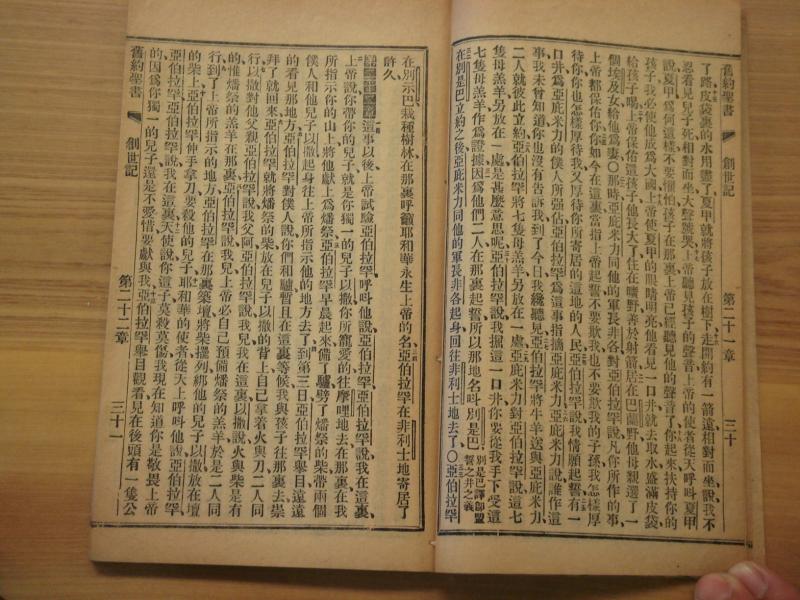 舊約聖書 創世記 第二十一章 三十
了路皮袋裏的水用盡了夏甲就將孩子放在樹下走開約有一箭遠相對而坐說我不
忍看見兒子死相對而坐大聲號哭上帝聽見孩子的聲音上帝的使者從天呼叫夏甲
說夏甲爲何這樣不要懼怕孩子在那裏上帝已經聽見他的聲音了你起來扶持你的
孩子我必使他成爲大國上帝使夏甲的眼睛明亮他看見一口井就去取水盛滿皮袋
給孩子喝上帝保佑這孩子他長大了住在曠野善於射箭居在巴蘭野他母親選了一
個埃及女給他爲妻〇那時亞庇米力同他的軍長非各對亞伯拉罕說凡你所作的事
上帝都保佑你你如今在這裏當指上帝起誓不要欺我也不要欺我的子孫我怎樣厚
待你你也怎樣厚待我又厚待你所寄居的這地的人民亞伯拉罕說我情願起誓有一
口井爲亞庇米力的僕人所强佔亞伯拉罕爲這事指摘亞庇米力亞庇米力說誰作這
事我未曾知道你也沒有告訴我到了今日我纔聽見亞伯拉罕將牛羊送與亞庇米力
二人就彼此立約亞伯拉罕將七隻母羔羊另放在一處亞庇米力對亞伯拉罕說這七
隻母羔羊另放在一處是甚麼意思呢亞伯拉罕說我掘這一口井你要從我手下受這
七隻母羔羊作爲證據因爲他們二人在那裏起誓所以那地名叫別是巴別是巴譯卽盟誓之井之義
在別是巴立約之後亞庇米力同他的軍長非各起身回往非利士地去了〇亞伯拉罕
在別示巴栽種樹林在那裏呼籲耶和華永生上帝的名亞伯拉罕在非利士地寄居了
許久
這事以後上帝試驗亞伯拉罕呼叫他說亞伯拉罕說我在這裏
上帝說你帶你的兒子就是你獨一的兒子以撒你所寵愛的往摩哩地去在那裏在我
所指示你的山上將他獻上爲燔祭亞伯拉罕早晨起來備了驢劈了燔祭的柴帶兩個
僕人和他兒子以撒起身往上帝所指示他的地方去了到第三日亞伯拉罕舉目遠遠
的看見那地方亞伯拉罕對僕人說你們和驢暫且在這裏等候我與孩子往那裏去崇
拜了就回來亞伯拉罕就將燔祭的柴放在兒子以撒的背上自己拿着火與刀二人同
行以撒對他父親亞伯拉罕說我父阿亞伯拉罕說我兒我在這裏以撒說火與柴是有
的惟燔祭的羔羊在那裏亞伯拉罕說我兒上帝必自己預備燔祭的羔羊於是二人同
行到了上帝所指示的地方亞伯拉罕在那裏築壇將柴擺列綁他的兒子以撒放在壇
的柴上亞伯拉罕伸手拿刀要殺他的兒子耶和華的使者從天上呼叫他說亞伯拉罕
亞伯拉罕亞伯拉罕說我在這裏天使說你這子莫殺莫傷我現在知道你是敬畏上帝
的因爲你獨一的兒子還是不愛惜要獻與我亞伯拉罕舉目觀看見在後頭有一隻公
舊約聖書 創世記 第二十二章 三十一